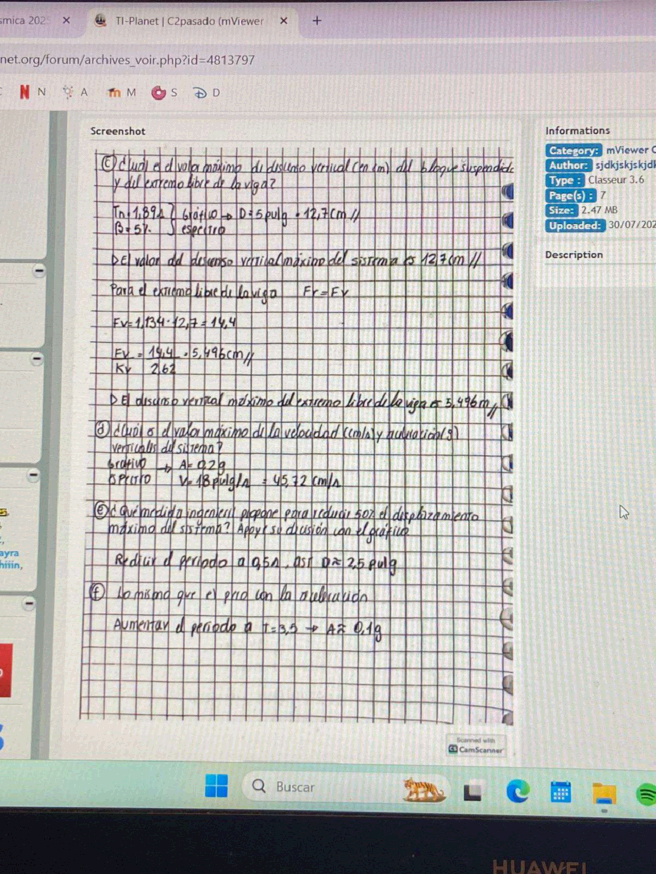 smica 202
TI-Planet | C2pasado (mViewer
net.org/forum/archives_voir.php?id=4813797
N N A m M S D D
Screenshot
Informations
Category: mViewer
Author: sjdkjskjskjdk
Type : Classeur 3.6
Page(s) : 7
Size: 2.47 MB
Uploaded: 30/07/202
Description
ⓒ ¿Cuál es el valor máximo de descenso vertical (en cm) del bloque suspendido
y del extremo libre de la viga?
Tn = 1,89s } Gráfico → D = 5 pulg = 12,7 cm //
β = 5%. } espectro
▷ El valor del descenso vertical máximo del sistema es 12,7 cm //
Para el extremo libre de la viga Fr = Fv
Fv = 1,134 · 12,7 = 14,4
Fv = 14,4 = 5,496 cm //
Kv 2,62
▷ El descenso vertical máximo del extremo libre de la viga es 5,496 m //
ⓓ ¿Cuál es el valor máximo de la velocidad (cm/s) y aceleración (g)
verticales del sistema?
Gráfico → A = 0,2g
espectro V = 18 pulg/s = 45,72 cm/s
ⓔ ¿Qué medida ingenieril propone para reducir 50% el desplazamiento
máximo del sistema? Apoye su decisión con el gráfico
Reducir el periodo a 0,5s, así D ≈ 2,5 pulg
ⓕ Lo mismo que e) pero con la aceleración
Aumentar el periodo a T = 3,5 → A ≈ 0,1g
Scanned with
CS CamScanner
ayra
hiiin,
Buscar
HUAWEI